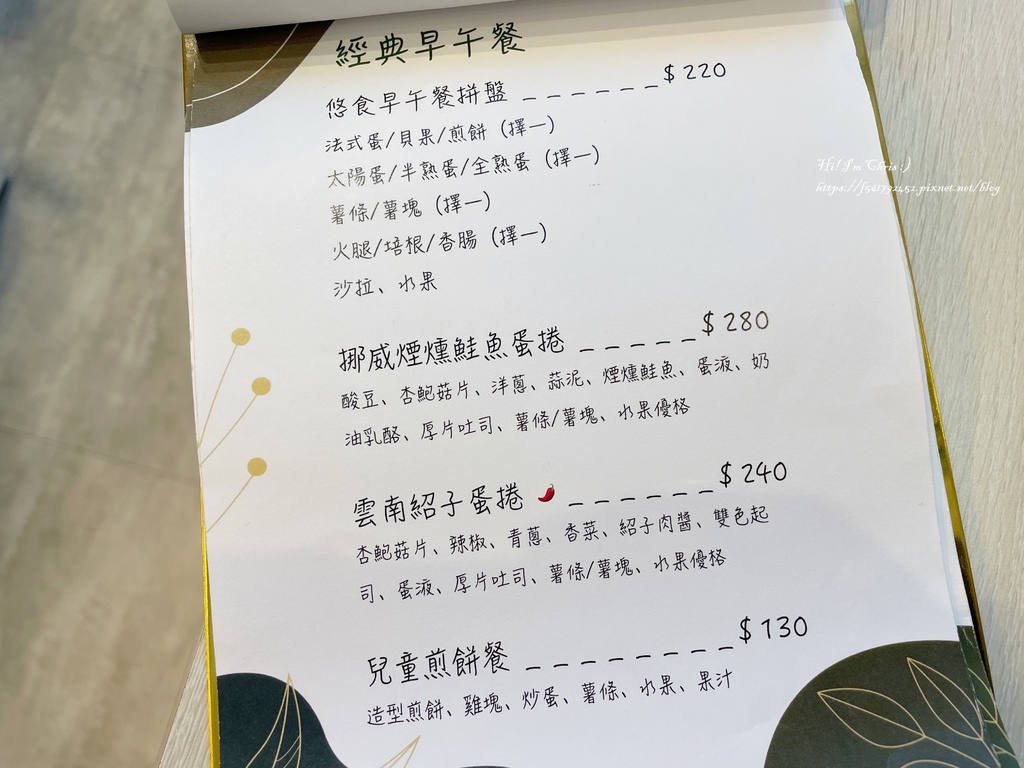 經典早午餐
悠食早午餐拼盤 _ _ _ _ _ _ $ 220
法式蛋/貝果/煎餅 (擇一)
太陽蛋/半熟蛋/全熟蛋 (擇一)
薯條/薯塊 (擇一)
火腿/培根/香腸 (擇一)
沙拉、水果
Hi! I'm Chris :)
https://f561792452.pixnet.net/blog
挪威煙燻鮭魚蛋捲 _ _ _ _ _ $ 280
酸豆、杏鮑菇片、洋蔥、蒜泥、煙燻鮭魚、蛋液、奶
油乳酪、厚片吐司、薯條/薯塊、水果優格
雲南紹子蛋捲 🌶 _ _ _ _ _ _ $ 240
杏鮑菇片、辣椒、青蔥、香菜、紹子肉醬、雙色起
司、蛋液、厚片吐司、薯條/薯塊、水果優格
兒童煎餅餐 _ _ _ _ _ _ _ _ $ 130
造型煎餅、雞塊、炒蛋、薯條、水果、果汁